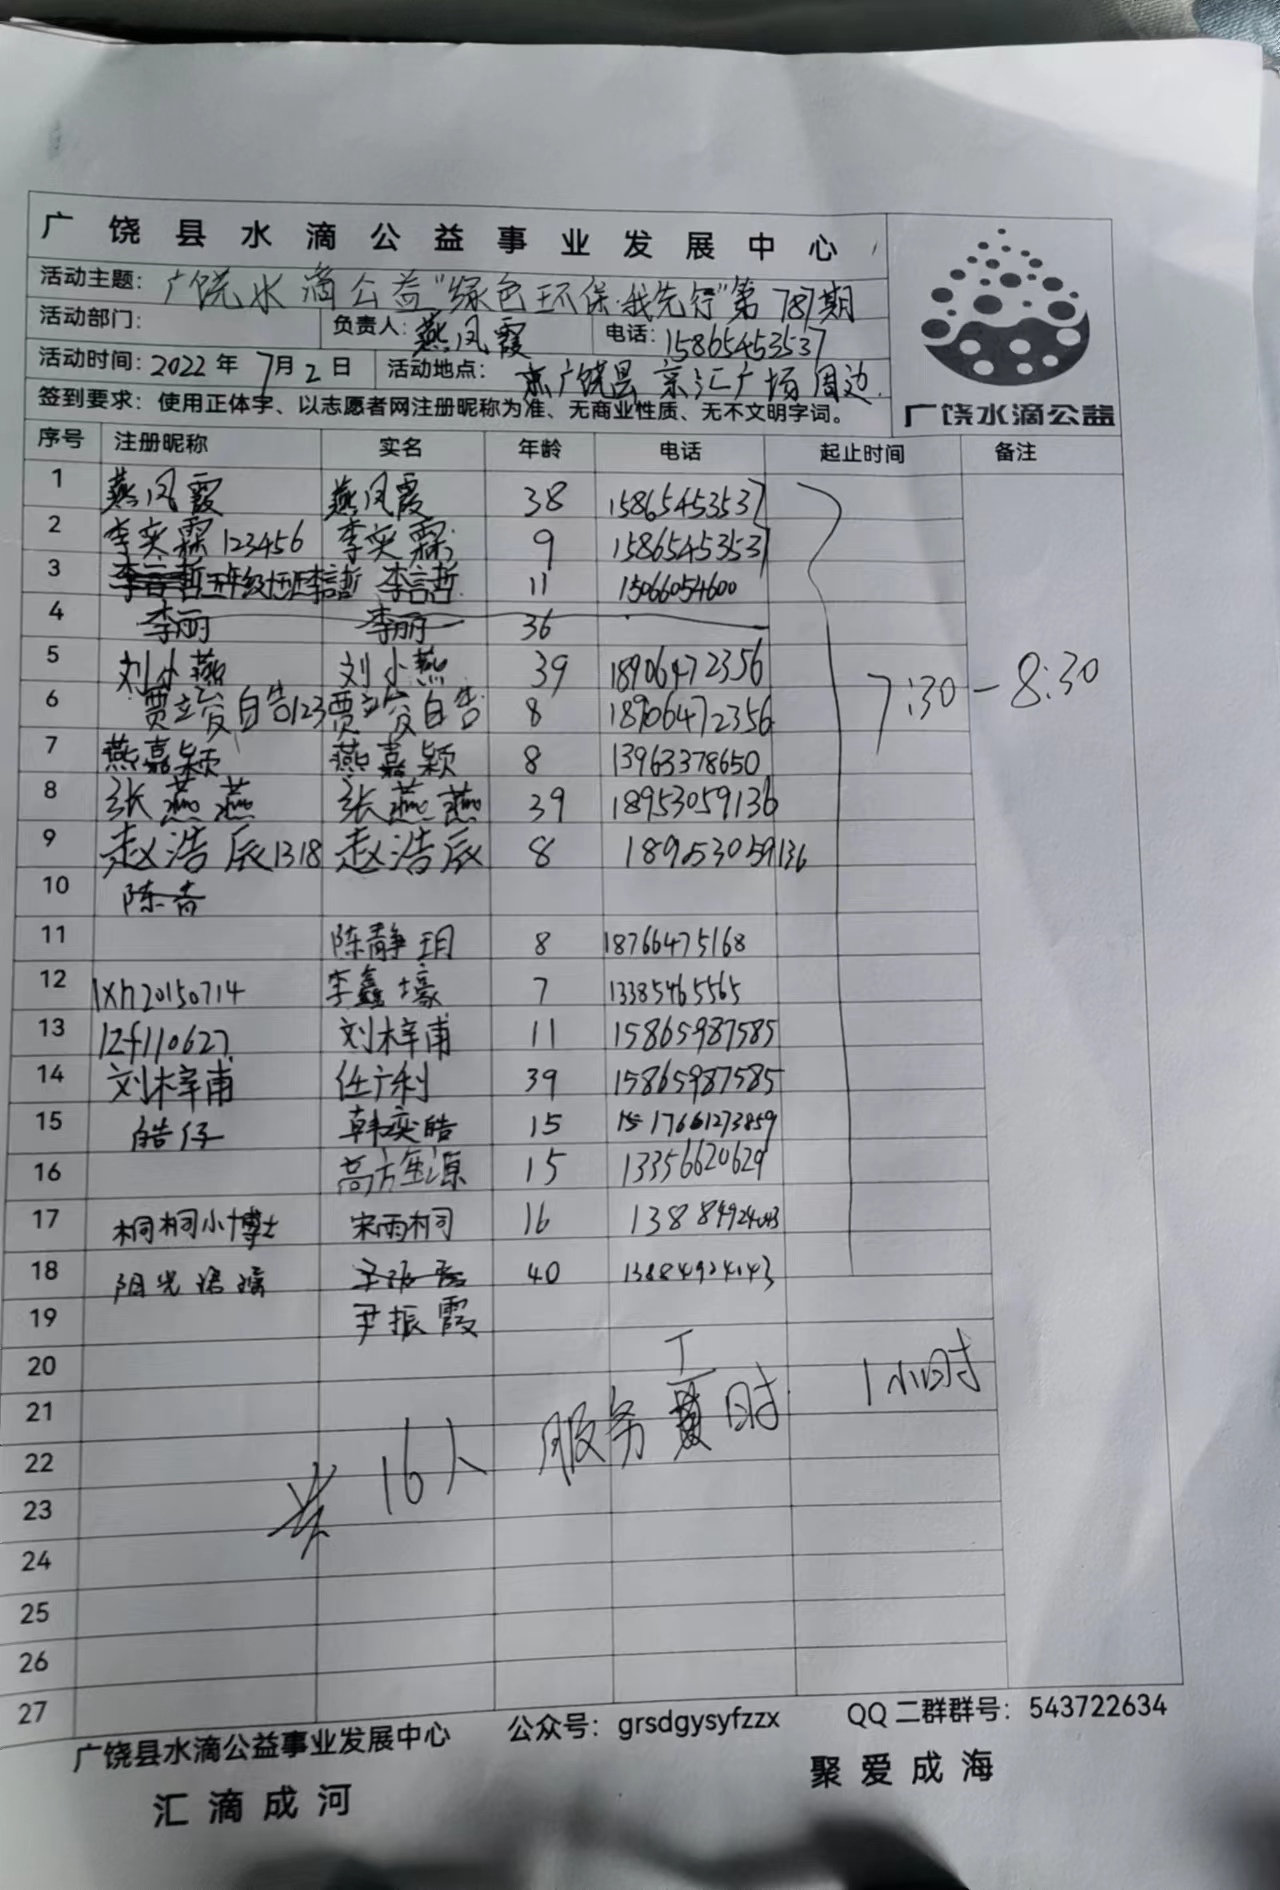 广饶县水滴公益事业发展中心
活动主题：广饶水滴公益"绿色环保·我先行"第787期
活动部门： 负责人：燕凤霞 电话：15865453537
活动时间：2022年7月2日 活动地点：广饶县京汇广场周边
签到要求：使用正体字、以志愿者网注册昵称为准、无商业性质、无不文明字词。
广饶水滴公益
序号 注册昵称 实名 年龄 电话 起止时间 备注
1 燕凤霞 燕凤霞 38 15865453537
2 李奕霖123456 李奕霖 9 15865453537
3 五年级十班李言哲 李言哲 11 15066054600
4 李丽 李丽 36
5 刘小燕 刘小燕 39 18906472356
7:30-8:30
6 贾立 8 18906472356
7 燕嘉颖 燕嘉颖 8 13963378650
8 张燕燕 张燕燕 39 18953059136
9 赵浩辰1318 赵浩辰 8 18953059136
10 陈
11 陈静玥 8 18766475168
12 lxh20150714 李鑫壕 7 13385465565
13 lzf110627 刘梓甫 11 15865987585
14 刘梓甫 任广利 39 15865987585
15 皓仔 韩奕皓 15 17661273859
16 高方 源 15 13356620629
17 桐桐小博士 宋雨桐 16 13884924143
18 阳光 40 13884924143
19 尹振霞
20
21 共16人 服务 时 1小时
22
23
24
25
26
27
广饶县水滴公益事业发展中心 公众号：grsdgysyfzzx QQ二群群号：543722634
汇滴成河 聚爱成海